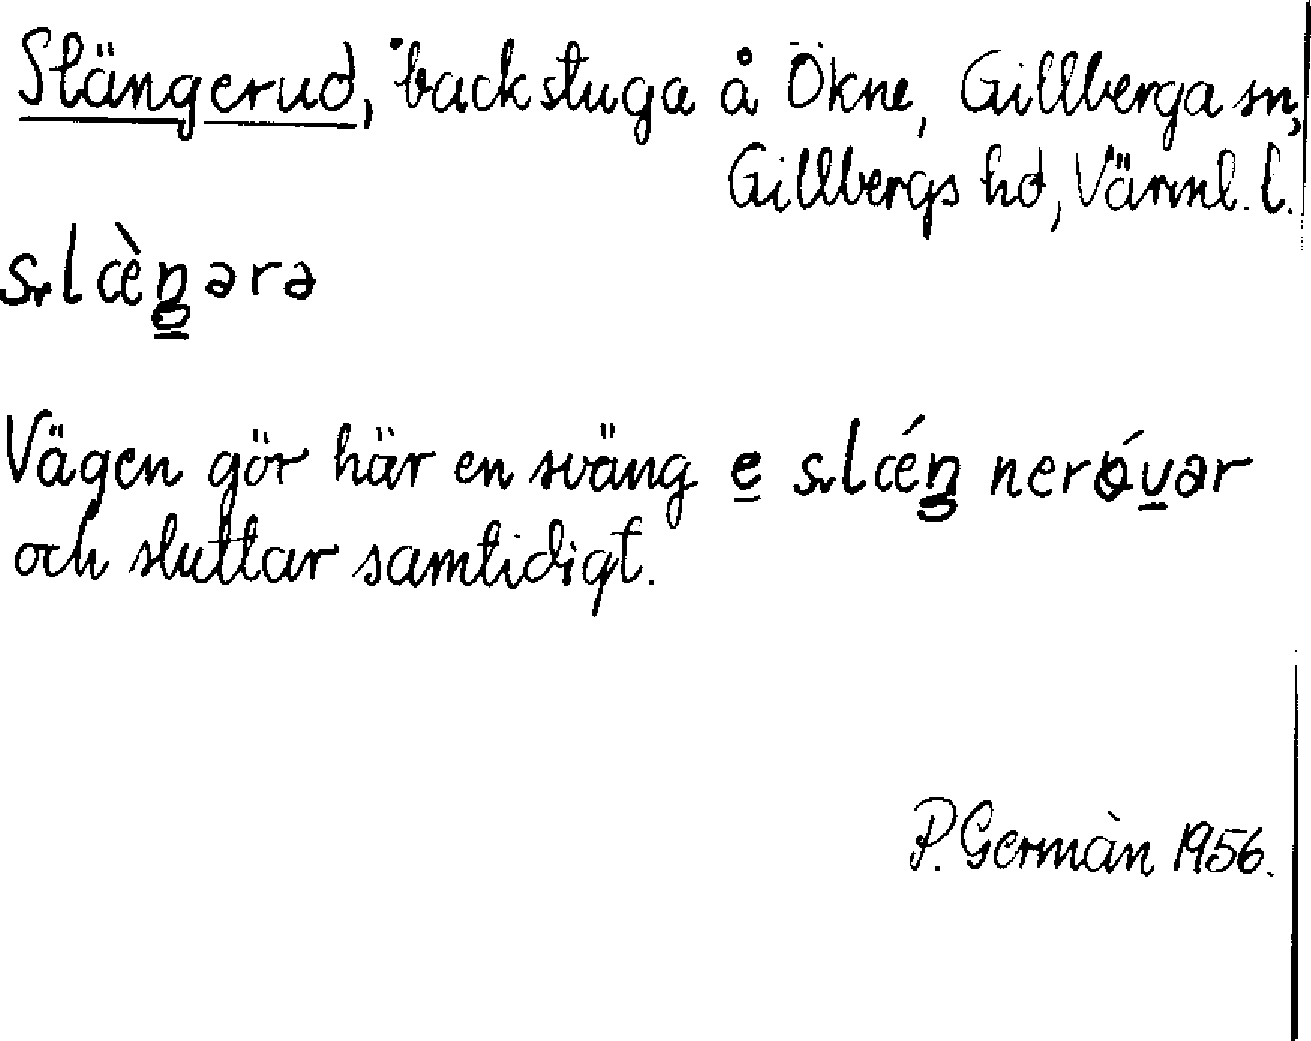 Slängerud, backstuga å Ökne, Gillberga sn,
Gillbergs hd, Värml. l.
slæ̀ŋərə
Vägen gör här en sväng e slǽŋ neróvər
och sluttar samtidigt.
P. Germàn 1956.